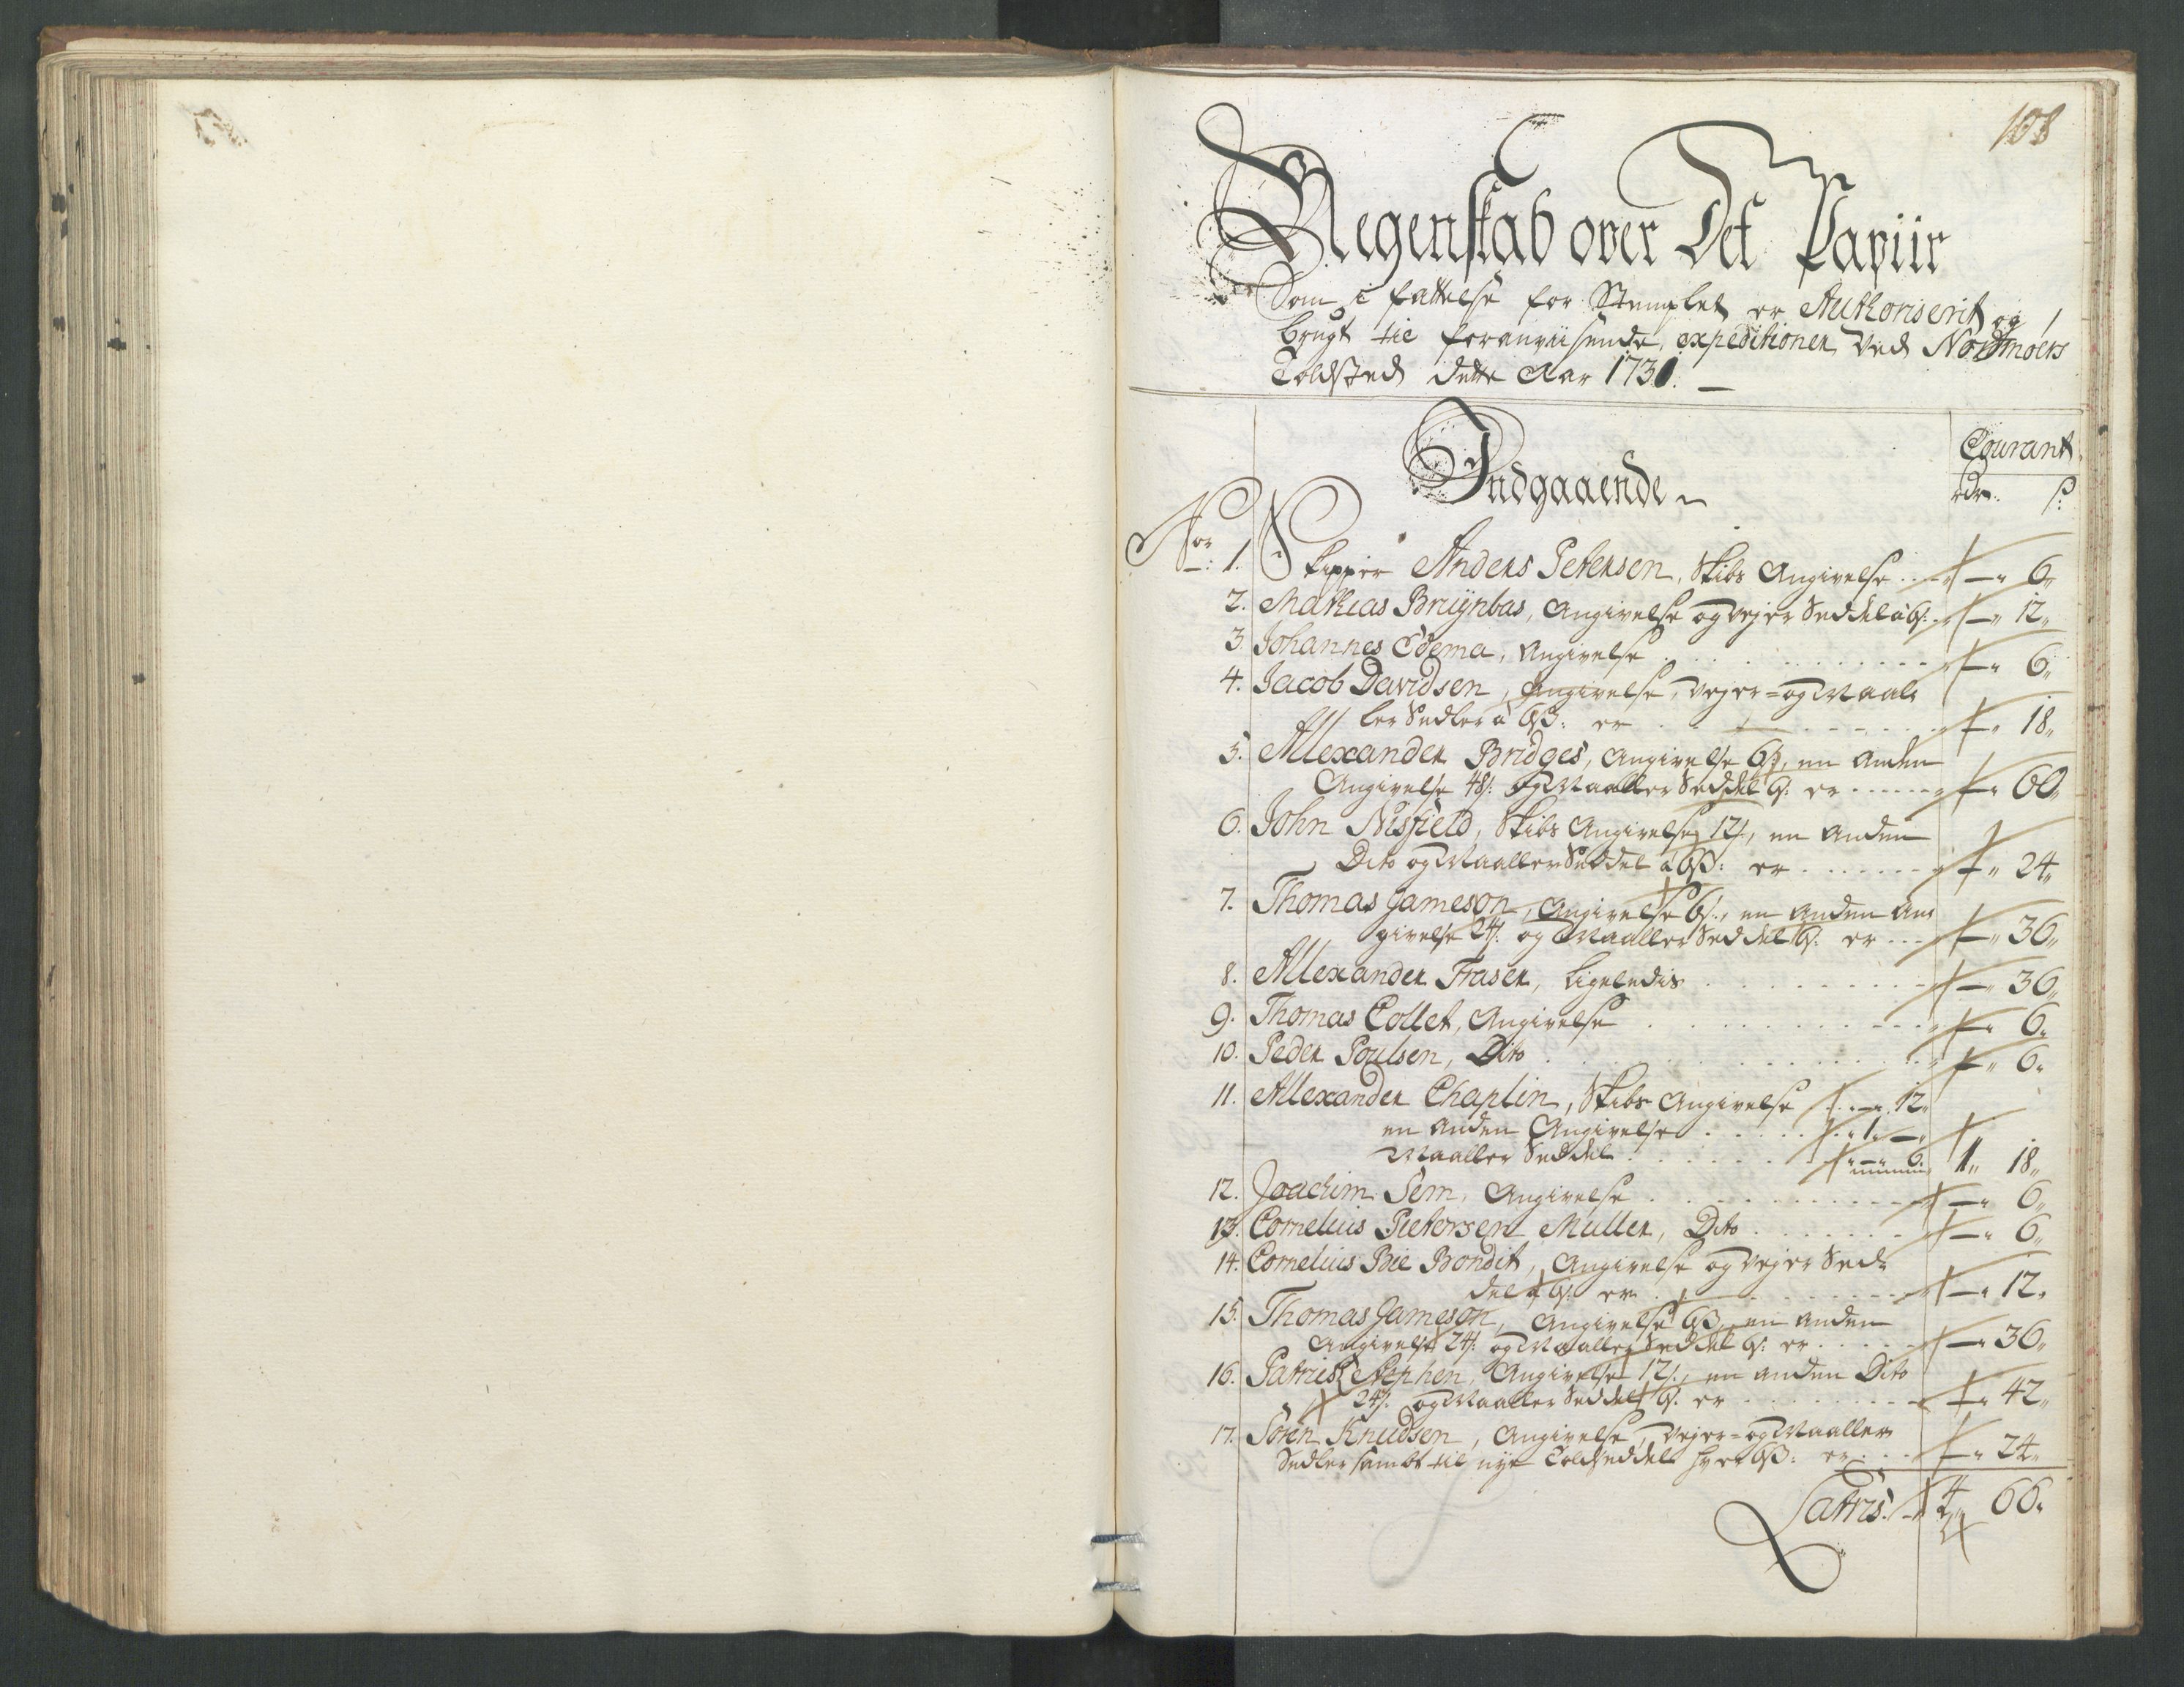 108
Regenskab over Det Papiir
Som i fattelse for Stemplet er Authoriserit og
brugt til foranviisende expeditioner ved Nordmoers
Toldsted dette Aar 1731.
Courant
Indgaaende
rdr. ß:
No: 1. Skipper Anders Petersen, Skibs Angivelse - „ 6„
2. Mathias Bruÿnbas, Angivelse og Vejer Seddel a 6ß: - „ 12„
3. Johannes Edema, Angivelse - „ 6„
4. Jacob Davidsen, Angivelse, Vejer= og Maal-
ler Sedler a 6ß: er - „ 18„
5. Allexander Bridges, Angivelse 6ß, en Anden
Angivelse 48ß: og Maaller Seddel 6ß: er - „ 60„
6. John Nisfield, Skibs Angivelse 12ß, en Anden
Dito og Maaller Seddel a 6ß: er - „ 24„
7. Thomas Jameson, Angivelse 6ß:, en Anden An-
givelse 24ß: og Maaller Seddel 6ß: er - „ 36„
8. Allexander Fraser, Ligeledis - „ 36„
9. Thomas Collet, Angivelse - „ 6„
10. Peder Poulsen, Dito - „ 6„
11. Allexander Chaplin, Skibs Angivelse - „ 12„
en Anden Angivelse „ 1 „ -
Maaller Seddel „ - „ 6. 1„ 18„
12. Joachim Sem, Angivelse - „ 6„
13. Cornelius Pietersen Muller, Dito - „ 6„
14. Cornelius Bie Bondit, Angivelse og Vejer Sed-
del a 6ß: er - „ 12„
15. Thomas Jameson, Angivelse 6ß, en Anden
Angivelse 24ß: og Maaller Seddel 6ß: er - „ 36„
16. Patrick Stephen, Angivelse 12ß:, en anden Dito
24ß: og Maaller Seddel 6ß: er - „ 42„
17. Sören Knudsen, Angivelse, Vejer= og Maaller
Sedler sambt til nye Told Seddel hver 6ß: er - „ 24„
Latris 4„ 66„